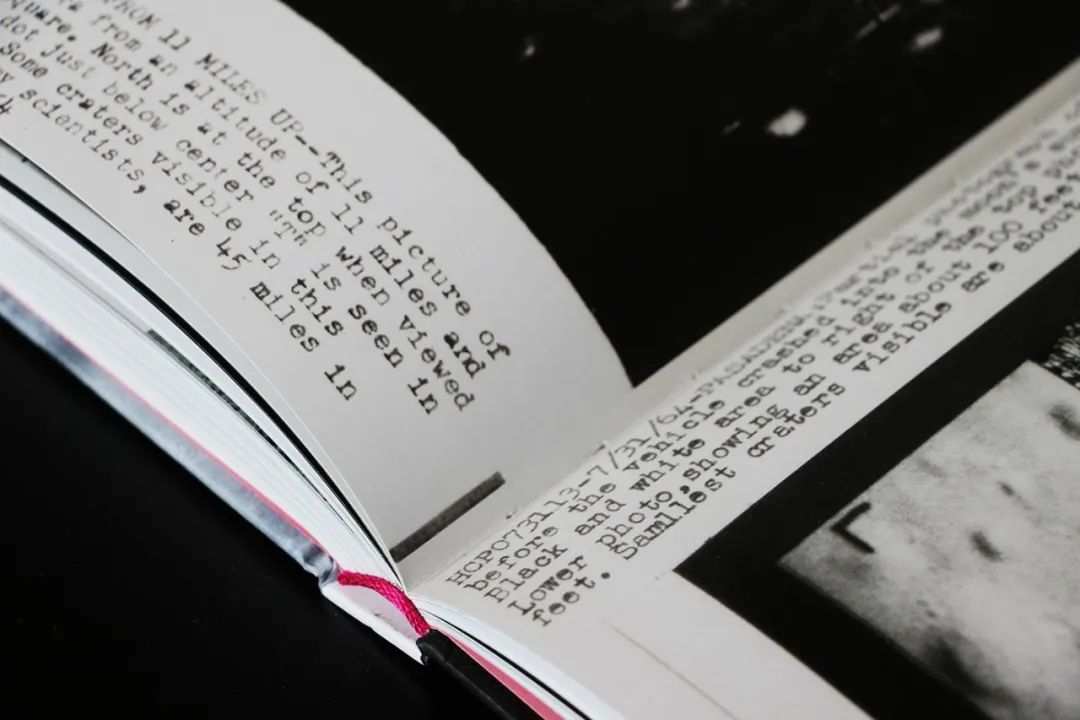 FROM 11 MILES UP--This picture of
from an altitude of 11 miles and
square. North is at the top when viewed
dot just below center "T" is seen in
Some craters visible in this
scientists, are 45 miles in
HCP073113-7/31/64-PASADENA, photograph
before the vehicle crashed into the moon's
Black and white area to right of the top
Lower photo, showing an area about 100 feet
feet. Samllest craters visible are about